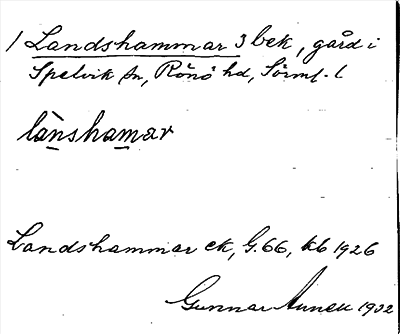 / Landshammar 3 bek, gård i
Spelvik sn, Rönö hd, Sörml. l
lànshamar
Landshammar ek, G. 66, kb 1926
Gunnar 1932